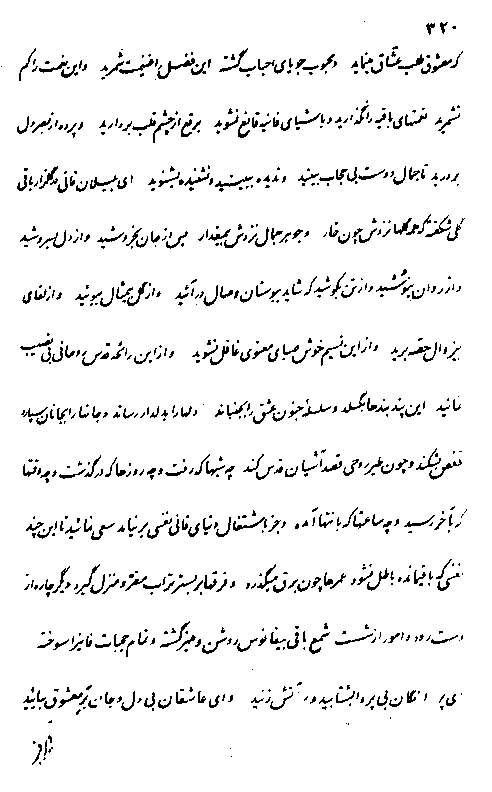 ۳۲۰
که معشوق طلب عشّاق مینماید و محبوب جویای احباب گشته این فضل را غنیمت شمرید و این نعمت را کم
نشمرید نعمتهای باقیه را نگذارید و باشیای فانیه قانع نشوید برقع از چشم قلب بردارید و پرده از بصر دل
بردرید تا جمال دوست بی حجاب بینید و ندیده ببینید و نشنیده بشنوید ای بلبلان فانی در گلزار باقی
گلی شکفته که همه گلها نزدش چون خار و جوهر جمال نزدش بیمقدار پس از جان بخروشید و از دل بسروشید
و از روان بنوشید و از تن بکوشید که شاید ببوستان وصال درآئید و از گل بیمثال ببوئید و از لقای
بیزوال حصّه برید و از این نسیم خوش صبای معنوی غافل نشوید و از این رائحه قدس روحانی بی نصیب
نمانید این پند بندها بگسلد و سلسلهٔ جنون عشق را بجنباند دلها را بدلدار رساند و جانها را بجانان سپارد
قفس بشکند و چون طیر روحی قصد آشیان قدس کند چه شبها که رفت و چه روزها که درگذشت و چه وقتها
که بآخر رسید و چه ساعتها که بانتها آمده و جز باشتغال دنیای فانی نفسی برنیامد سعی نمائید تا این چند
نفسی که باقیمانده باطل نشود عمرها چون برق میگذرد و فرقها بر بستر تراب مقر و منزل گیرد دیگر چاره از
دست رود و امور از شست شمع باقی بیفانوس روشن و منیر گشته و تمام حجبات فانی را سوخته
ای پروانگان بی پروا بشتابید و بر آتش زنید و ای عاشقان بی دل و جان بر معشوق بیائید